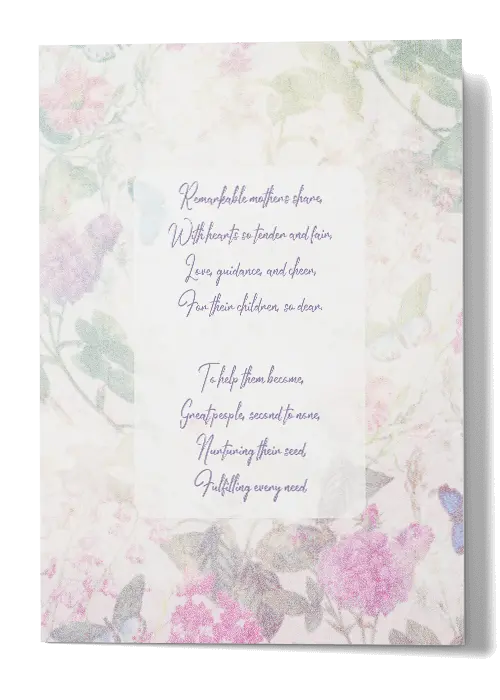 Remarkable mothers share,
With hearts so tender and fair,
Love, guidance, and cheer,
For their children, so dear.
To help them become,
Great people, second to none,
Nurturing their seed,
Fulfilling every need,